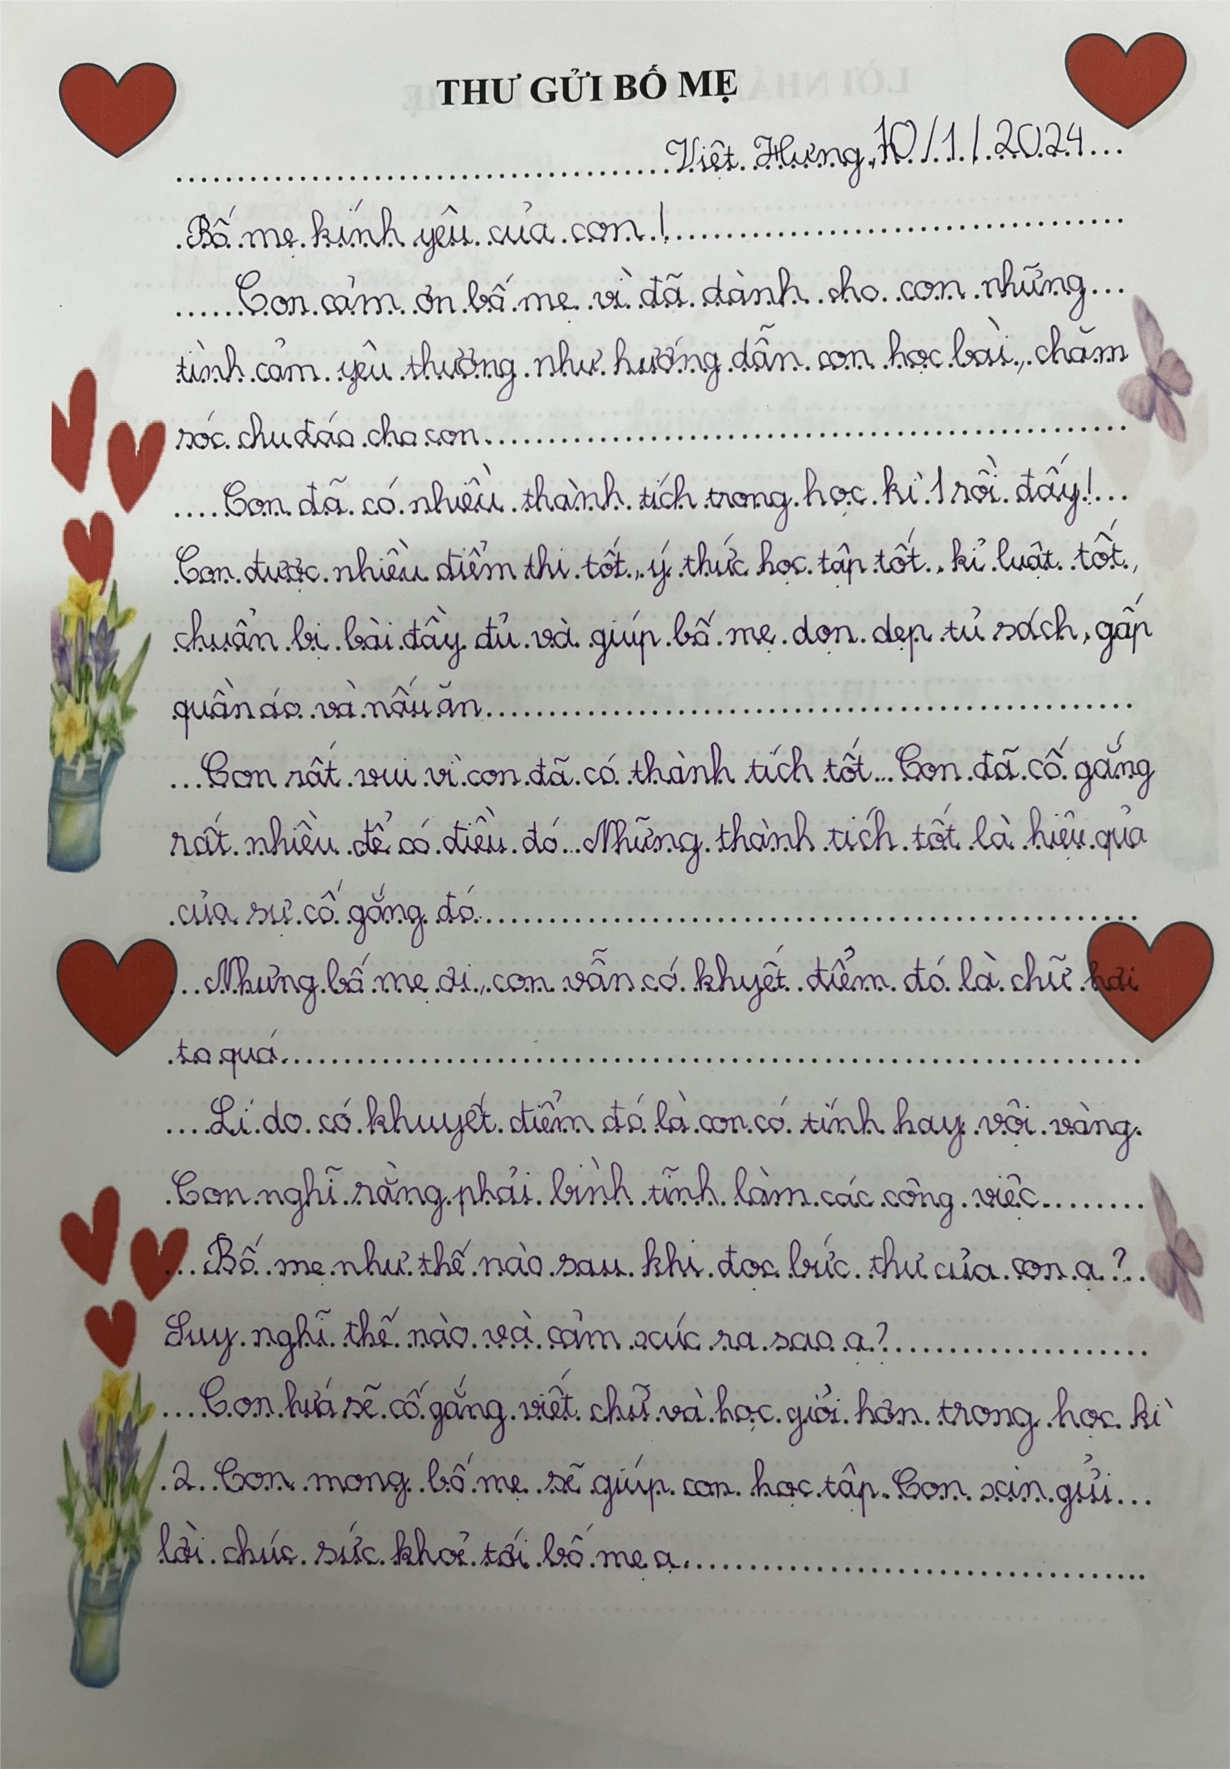 THƯ GỬI BỐ MẸ
Việt Hưng, 10/1/2024
Bố mẹ kính yêu của con!
Con cảm ơn bố mẹ vì đã dành cho con những
tình cảm yêu thương như hướng dẫn con học bài, chăm
sóc chu đáo cho con.
Con đã có nhiều thành tích trong học kì 1 rồi đấy!
Con được nhiều điểm thi tốt, ý thức học tập tốt, kỉ luật tốt,
chuẩn bị bài đầy đủ và giúp bố mẹ dọn dẹp tủ sách, gấp
quần áo và nấu ăn.
Con rất vui vì con đã có thành tích tốt. Con đã cố gắng
rất nhiều để có điều đó. Những thành tích tốt là hiệu quả
của sự cố gắng đó.
Nhưng bố mẹ ơi, con vẫn có khuyết điểm đó là chữ hơi
to quá.
Lí do có khuyết điểm đó là con có tính hay vội vàng.
Con nghĩ rằng phải bình tĩnh làm các công việc.
Bố mẹ như thế nào sau khi đọc bức thư của con ạ?
Suy nghĩ thế nào và cảm xúc ra sao ạ?
Con hứa sẽ cố gắng viết chữ và học giỏi hơn trong học kì
2. Con mong bố mẹ sẽ giúp con học tập. Con xin gửi
lời chúc sức khoẻ tới bố mẹ ạ.